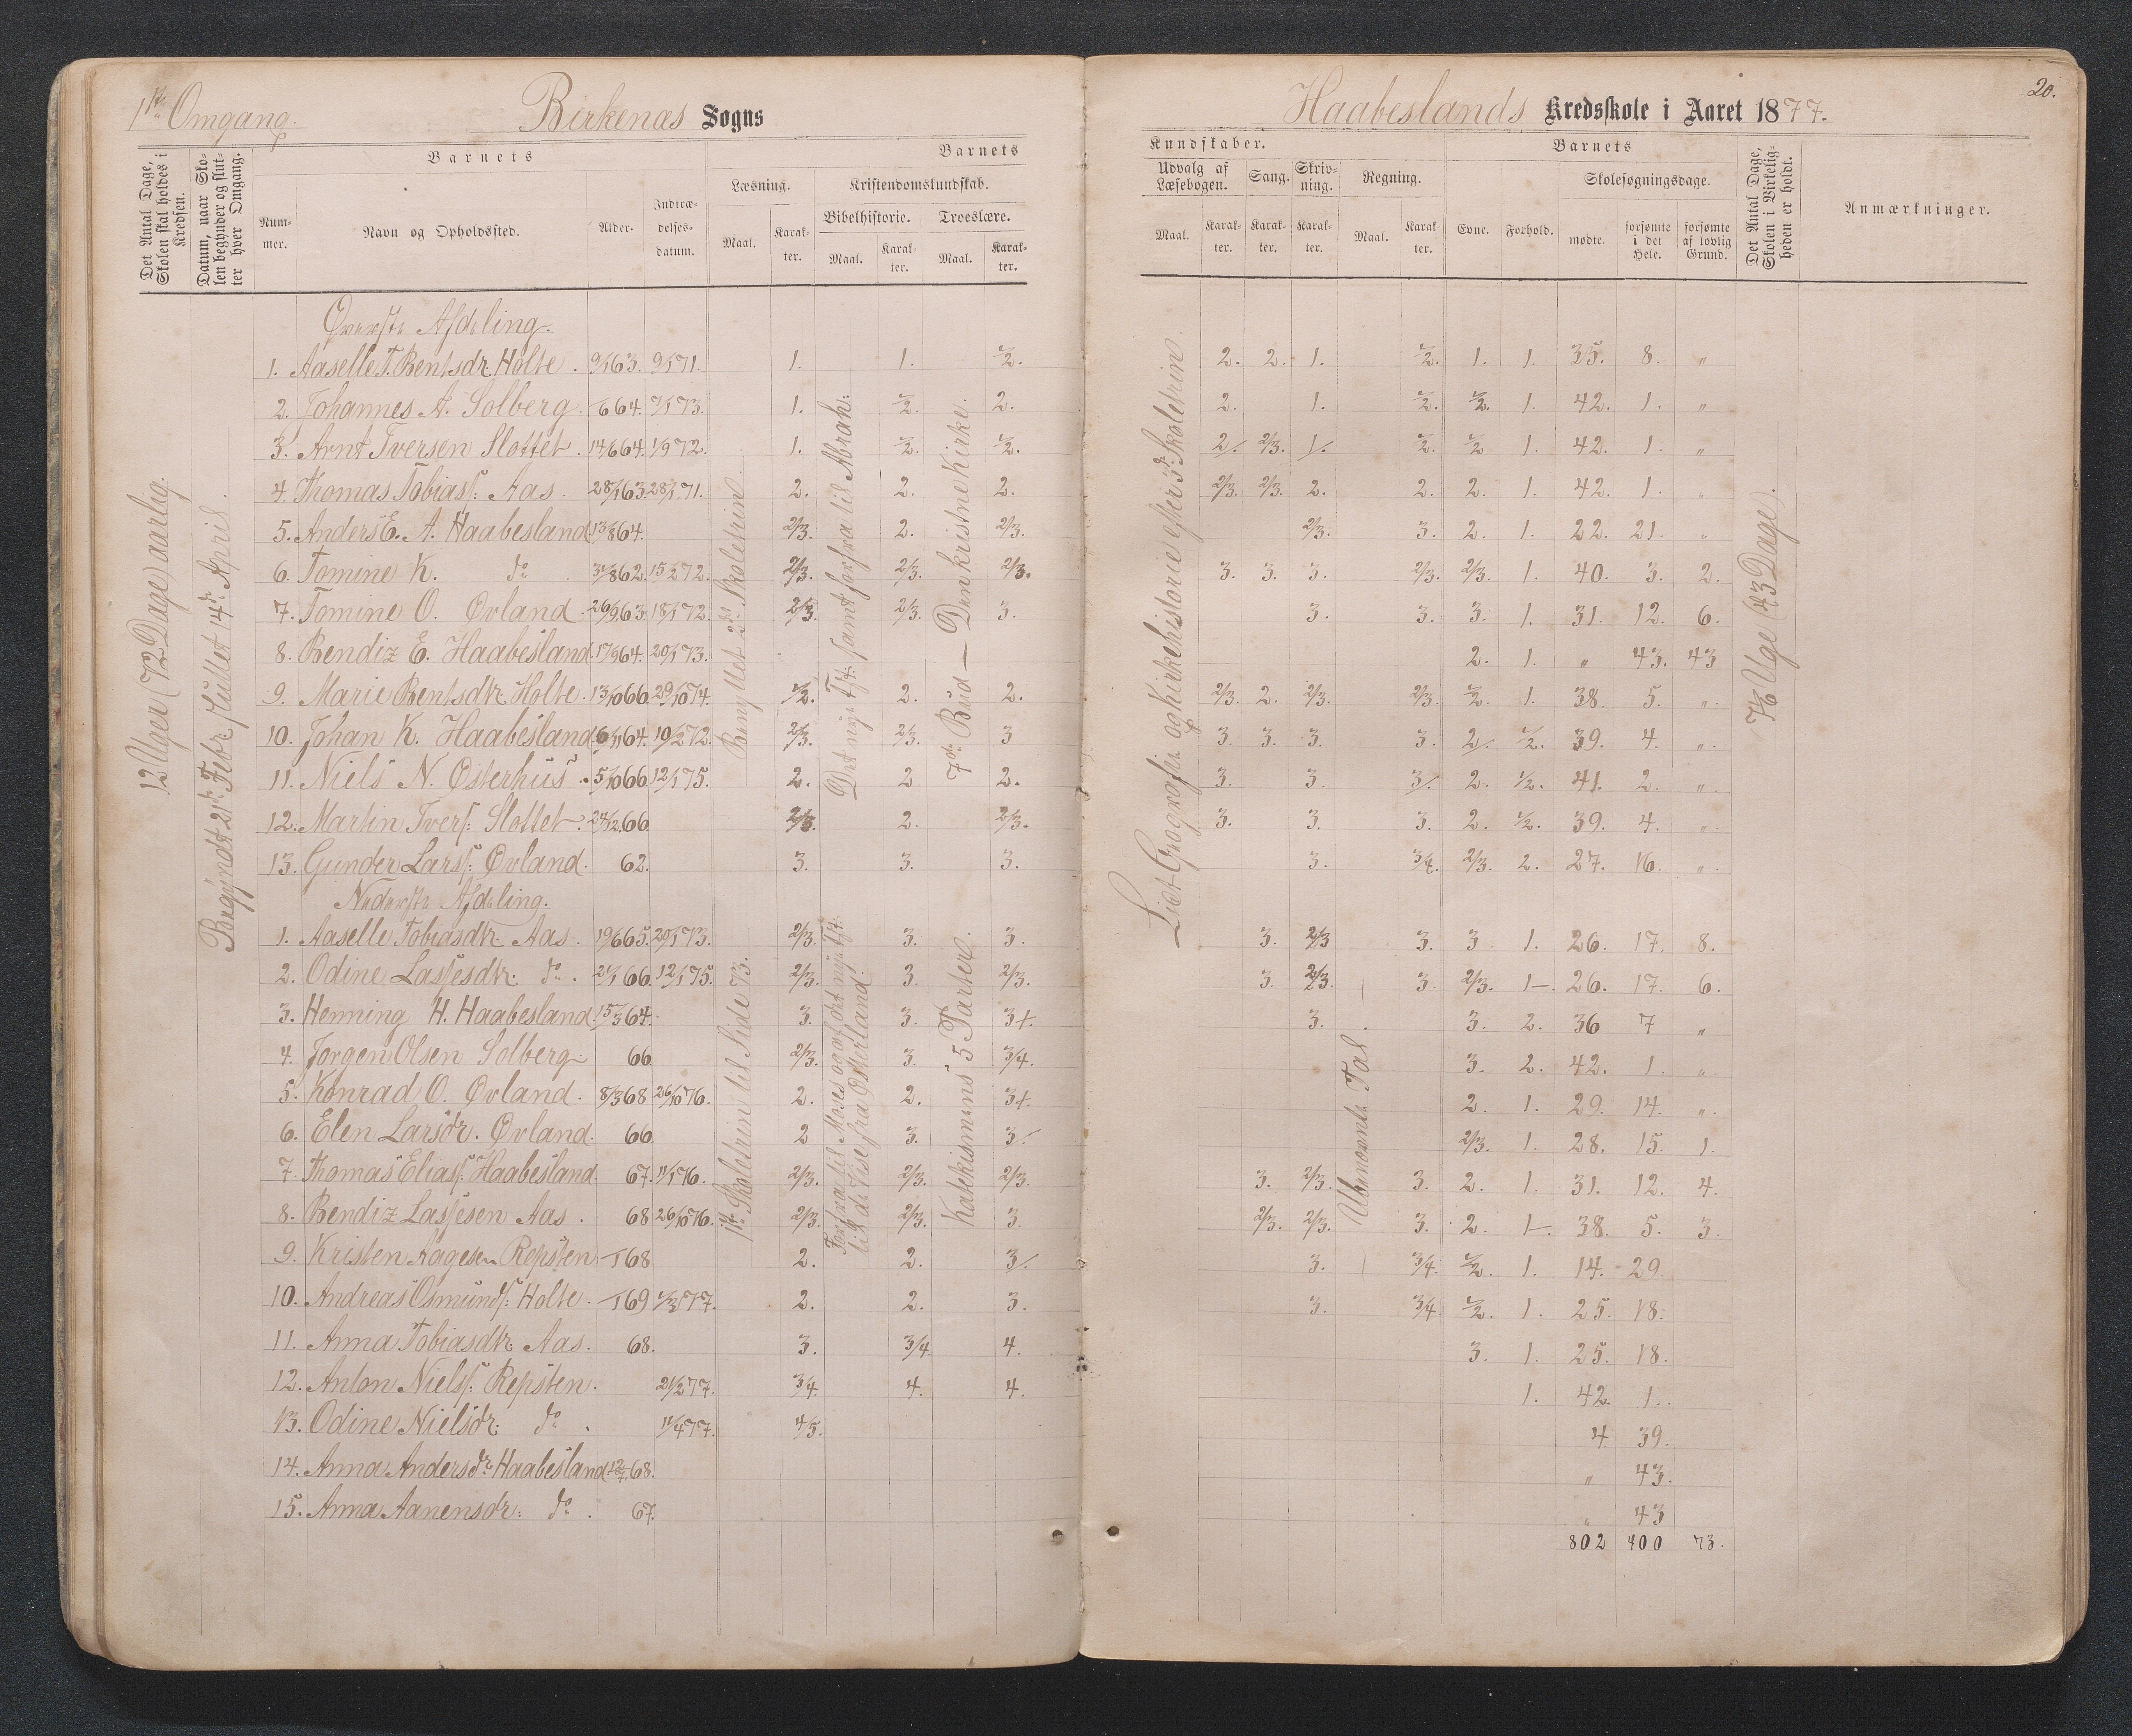 1ste Omgang.
Birkenæs Sogns
Haabeslands Kredsskole i Aaret 1877.
20.
Det Antal Dage, Skolen skal holdes i Kredsen.
Datum, naar Skolen begynder og slutter hver Omgang.
Barnets
Nummer.
Navn og Opholdssted.
Alder.
Indtrædelsesdatum.
Barnets
Læsning.
Maal.
Karakter.
Kristendomskundskab.
Bibelhistorie.
Maal.
Karakter.
Troeslære.
Maal.
Karakter.
Kundskaber.
Udvalg af Læsebogen.
Maal.
Karakter.
Sang.
Karakter.
Skrivning.
Karakter.
Regning.
Maal.
Karakter.
Barnets
Evne.
Forhold.
Skolesøgningsdage.
mødte.
forsømte i det Hele.
forsømte af lovlig Grund.
Det Antal Dage, Skolen i Virkeligheden er holdt.
Anmærkninger.
12 Uger (72 Dage) aarlig.
Begyndt 21de Febr. sluttet 14de April.
Øverste Afdeling.
1. Aaselle T. Bentsdr. Holte. 9/1 63. 9/1 71. 1. 1. 1/2. 2. 2. 1. 1/2. 1. 1. 35. 8. "
2. Johannes A. Solberg. 6 64. 7/1 73. 1. 1/2. 2. 2. 1. 1/2. 1/2. 1. 42. 1. "
3. Arnt Iversen Slottet. 14/6 64. 1/9 72. 1. 1/2. 1/2. 2/. 2/3. 1/. 1/2. 1/2 1. 42. 1. "
4. Thomas Tobiass: Aas. 28/1 63. 28/1 71. 2. 2. 2. 2/3. 2/3. 2. 2. 2. 1. 42. 1. "
5. Anders E. A. Haabesland 13/8 64. 2/3. 2. 2/3. 2/3. 3. 2. 1. 22. 21. "
6. Tomine K. do 31/8 62. 15/2 72. 2/3. 2/3. 2/3. 3. 3. 3. 2/3. 2/3. 1. 40. 3. 2.
7. Tomine O. Øvland. 26/9 63. 18/1 72. 2/3. 2/3. 3. 3. 3. 3. 1. 31. 12. 6.
8. Bendiz E. Haabesland. 17/9 64. 20/1 73. 2. 1. " 43. 43
9. Marie Bentsdtr. Holte. 13/10 66. 29/10 74. 1/2. 2. 2. 2/3. 2. 2/3. 2/3. 1/2. 1. 38. 5. "
10. Johan K. Haabesland 6/1 64. 10/2 72. 2/3. 2/3. 3 3. 3. 3. 3. 2/. 1/2. 39. 4. "
11. Niels N. Østerhus. 5/10 66 12/1 75. 2. 2 2. 3. 3. 3/. 2. 1/2. 41. 2. "
12. Martin Ivers: Slottet. 24/12 66. 2/3. 2. 2/3. 3. 3. 3. 2. 1/2. 39. 4. "
13. Gunder Larss: Øvland. 62. 3. 3. 3. 3. 3/4. 2/3. 2. 27. 16. "
Nederste Afdeling.
1. Aaselle Tobiasdtr. Aas. 19/6 65. 20/1 73. 2/3. 3. 3. 3. 2/3 3. 3 1. 26. 17. 8.
2. Odine Lassesdtr. do. 21/1 66. 12/1 75. 2/3. 3. 2/3. 3. 2/3. 3 2/3. 1-. 26. 17. 6.
3. Henning H. Haabesland. 15/3 64. 3. 3. 3+. 3. 3. 2. 36 7 "
4. Jørgen Olsen Solberg. 66 2/3. 3. 3/4. 3. 2. 42. 1. "
5. Konrad O. Øvland. 8/3 68 26/10 76. 2. 2. 3+. 2. 1. 29. 14. "
6. Elen Larsdr. Øvland. 66 2 3. 3/. 2/3. 1. 28. 15. 1.
7. Thomas Eliass: Haabesland. 67. 11/1 76. 2/3. 2/3. 2/3. 3. 2/3. 3. 2. 1. 31. 12. 4.
8. Bendiz Lassesen Aas. 68 26/10 76. 2/3. 2/3. 3. 2/3. 2/3. 3. 2. 1-. 38. 5. 3.
9. Kristen Aagesen Repsten. 68 2. 2. 3/. 3. 3/4. 1/2. 1. 14. 29.
10. Andreas Osmunds: Holte. 69 1/3 77. 2. 2. 3. 3. 3/4. 1/2. 1. 25. 18.
11. Anna Tobiasdtr. Aas. 68. 3. 3/4. 4. 3. 1. 25. 18.
12. Anton Nielss: Repsten. 21/2 77. 3/4. 4. 4. 1. 42. 1.
13. Odine Nielsdr. do. 11/4 77. 4/5. 4 39.
14. Anna Andersdr. Haabesland 12/7 68. " 43.
15. Anna Aanensdr: do. 67. " 43
802 400 73.
Bang Uet 2det Skoletrin.
1ste Skoletrin til Side 73.
Det nye Tst: samt forfra til Abrah:
Forfra til Moses og af det nye Tst:
til de Vise fra Østerland.
7de Bud — Den kristne Kirke.
Katekismens 5 Parter.
Lidt Geografie og Kirkehistorie efter 3de Skoletrin
Ubenævnte Tal
7 1/6 Uge (43 Dage).